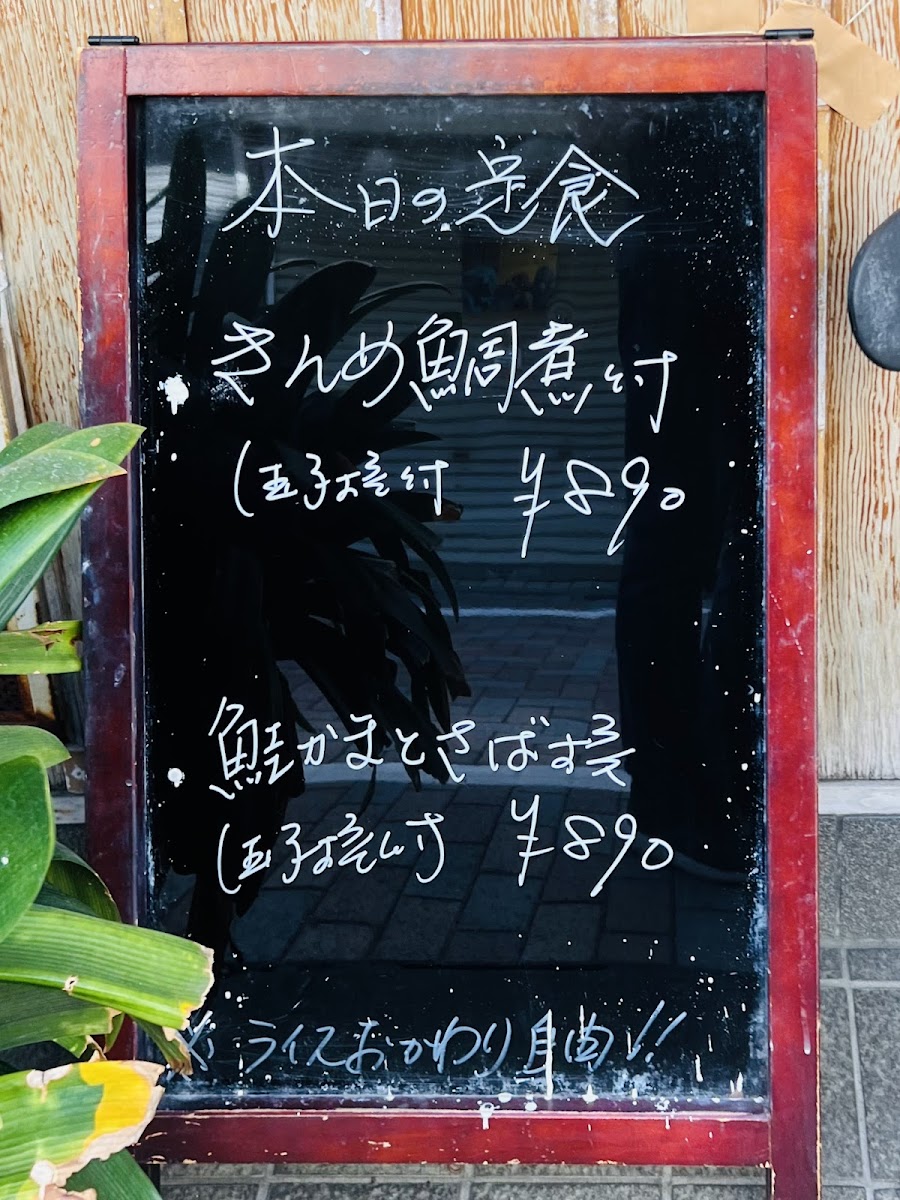 本日の定食
きんめ鯛煮付
(玉子焼付 ¥890
鮭かまとさば焼
(玉子焼付 ¥890
※ ライスおかわり自由!!